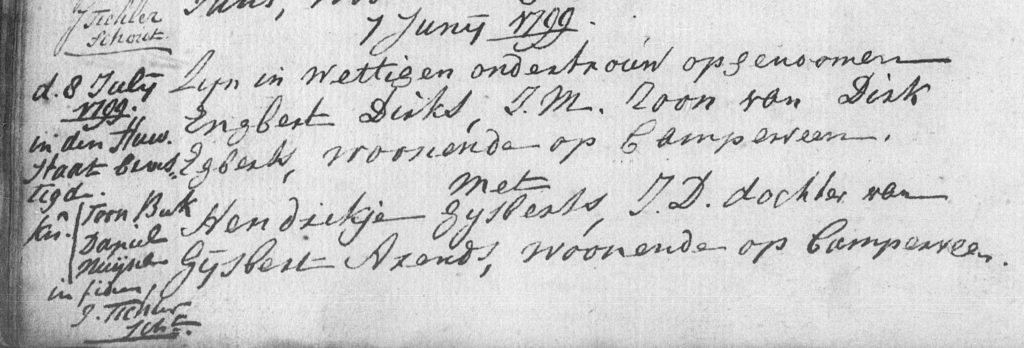 J Tichler
Schout
7 Junij 1799.
Zijn in wettigen ondertrouw opgenoomen
Engbert Dirks, J.M. Zoon van Dirk
Egberts, woonende op Camperveen.
met
Hendrikje Gijsberts, J.D. dochter van
Gijsbert Arends, woonende op Camperveen.
d. 8 Julij
1799.
in den Huw.
Staat beves
tigd.
Toon Buk
Daniel
in fidem,
J. Tichler
Scht.